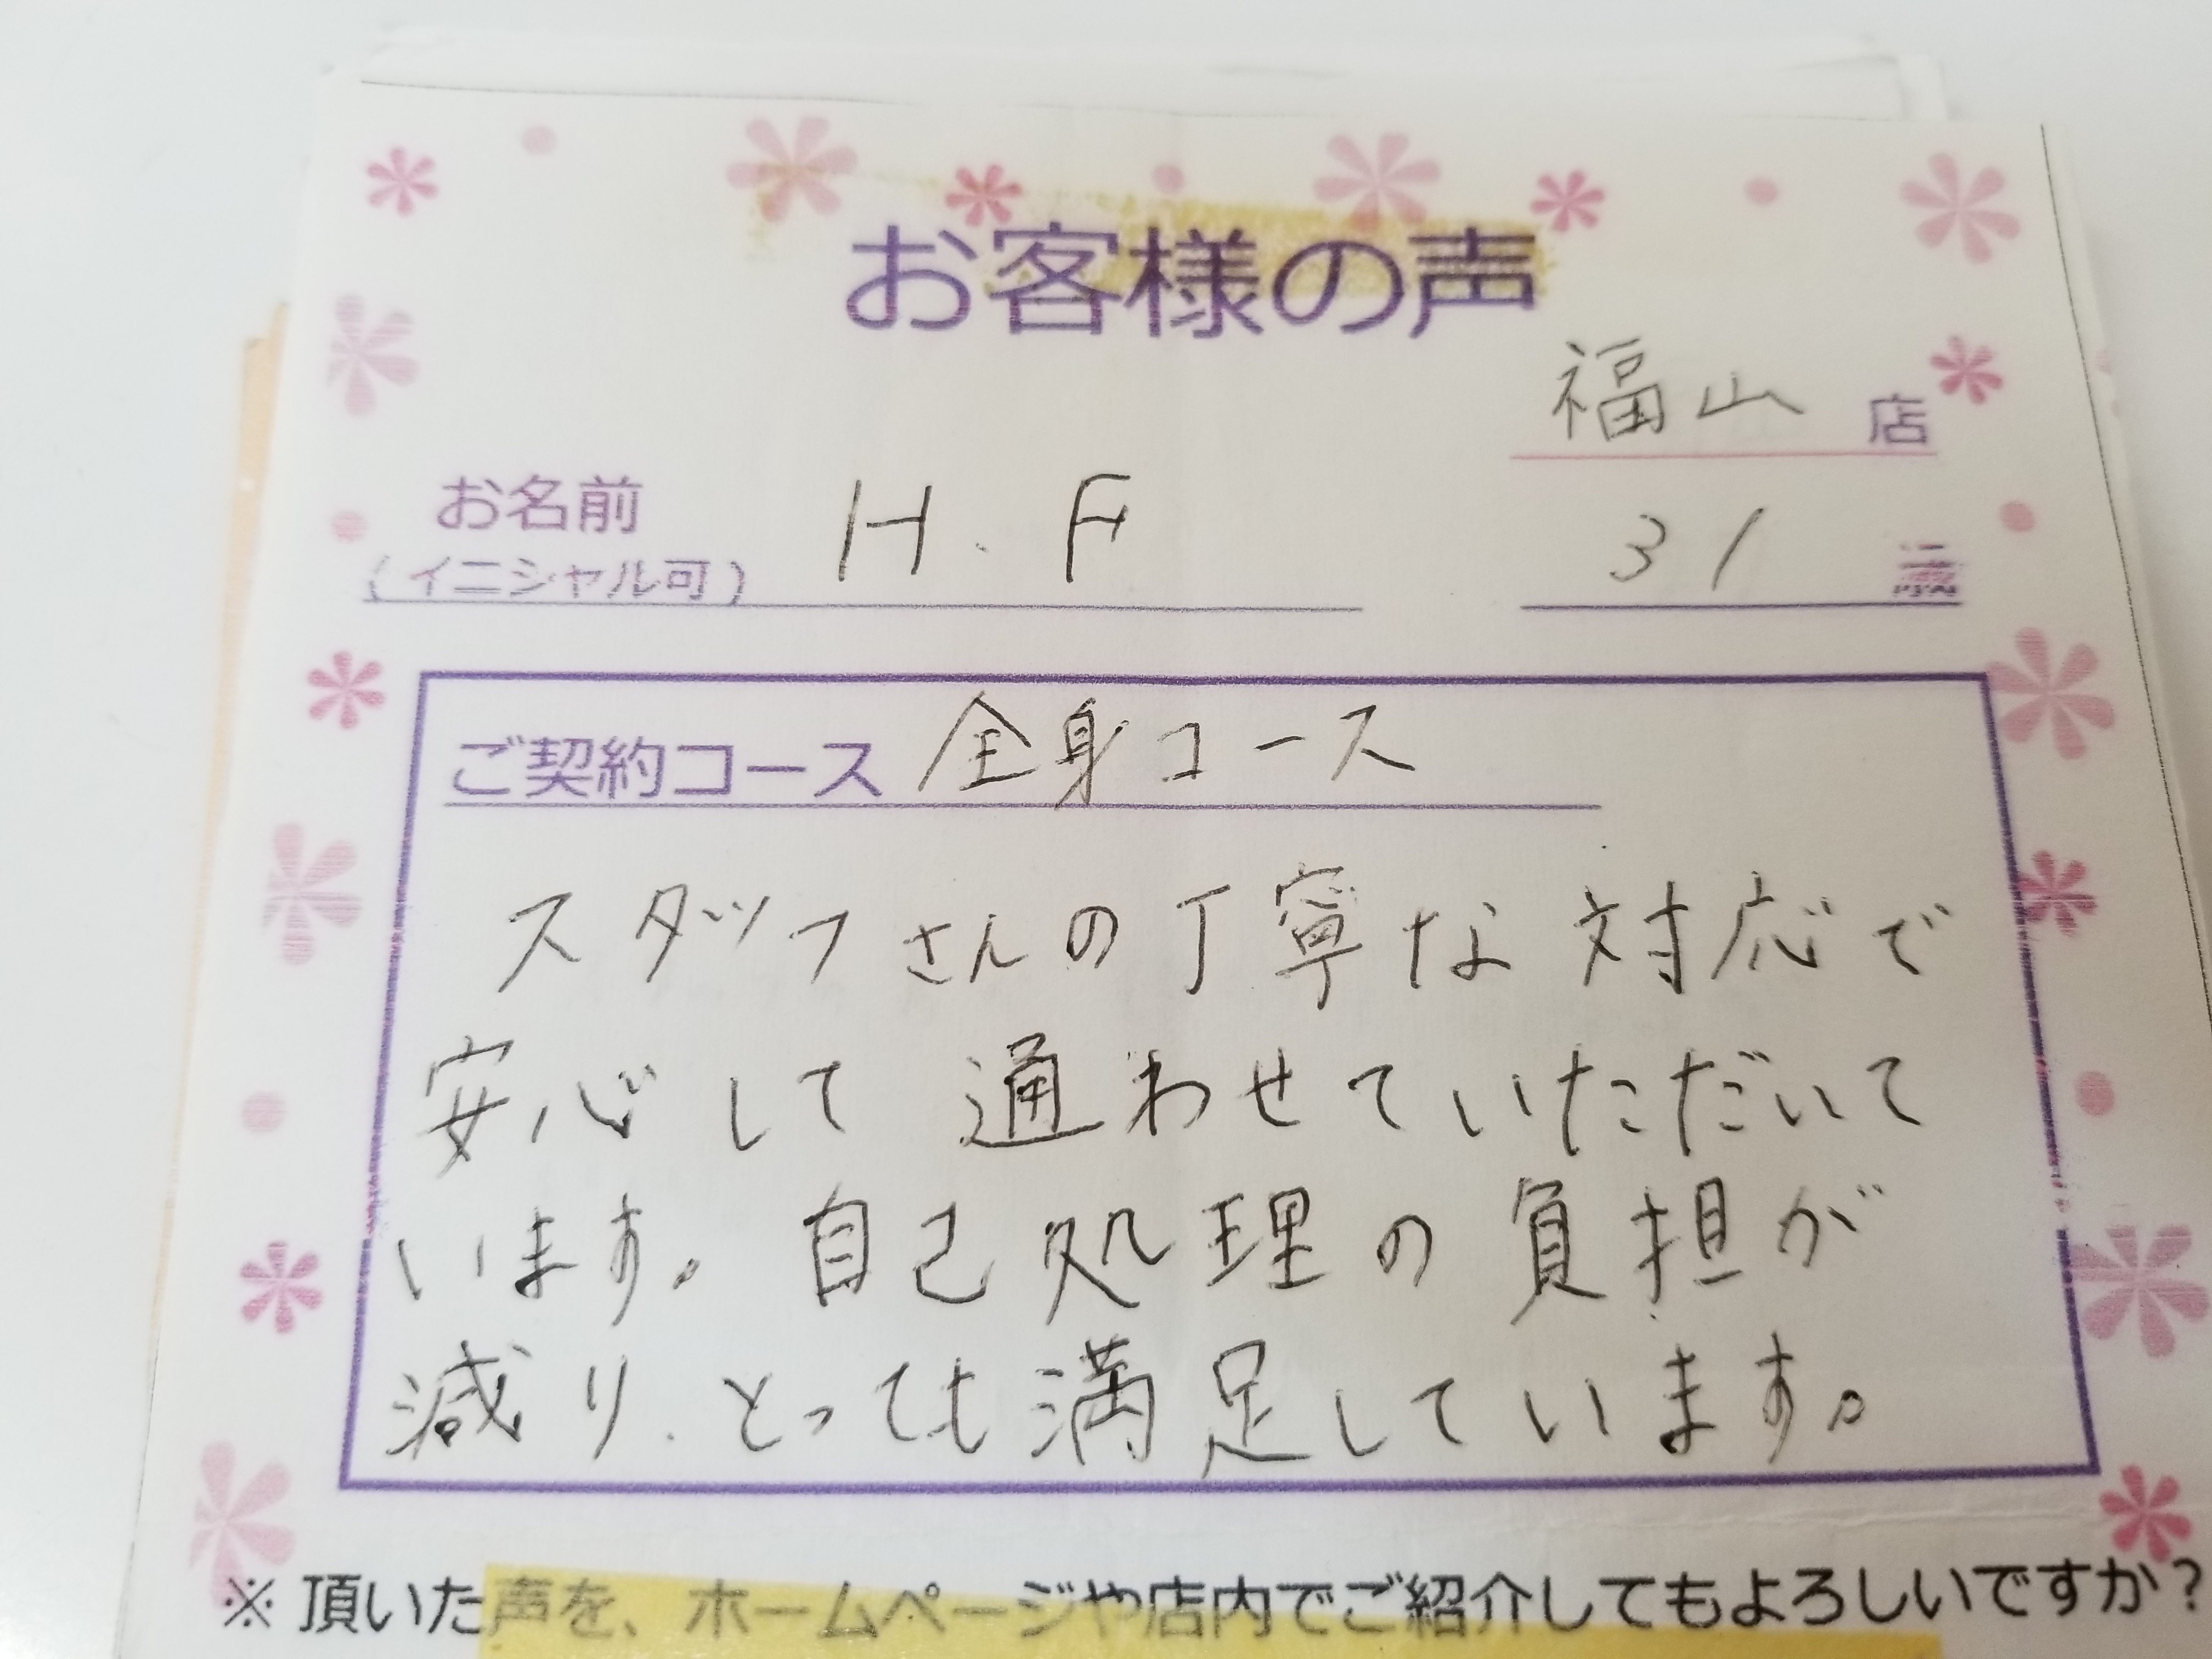 お客様の声
福山 店
お名前 H.F 31 歳
(イニシャル可)
ご契約コース 全身コース
スタッフさんの丁寧な対応で
安心して通わせていただいて
います。自己処理の負担が
減り、とっても満足しています。
※頂いた声を、ホームページや店内でご紹介してもよろしいですか？